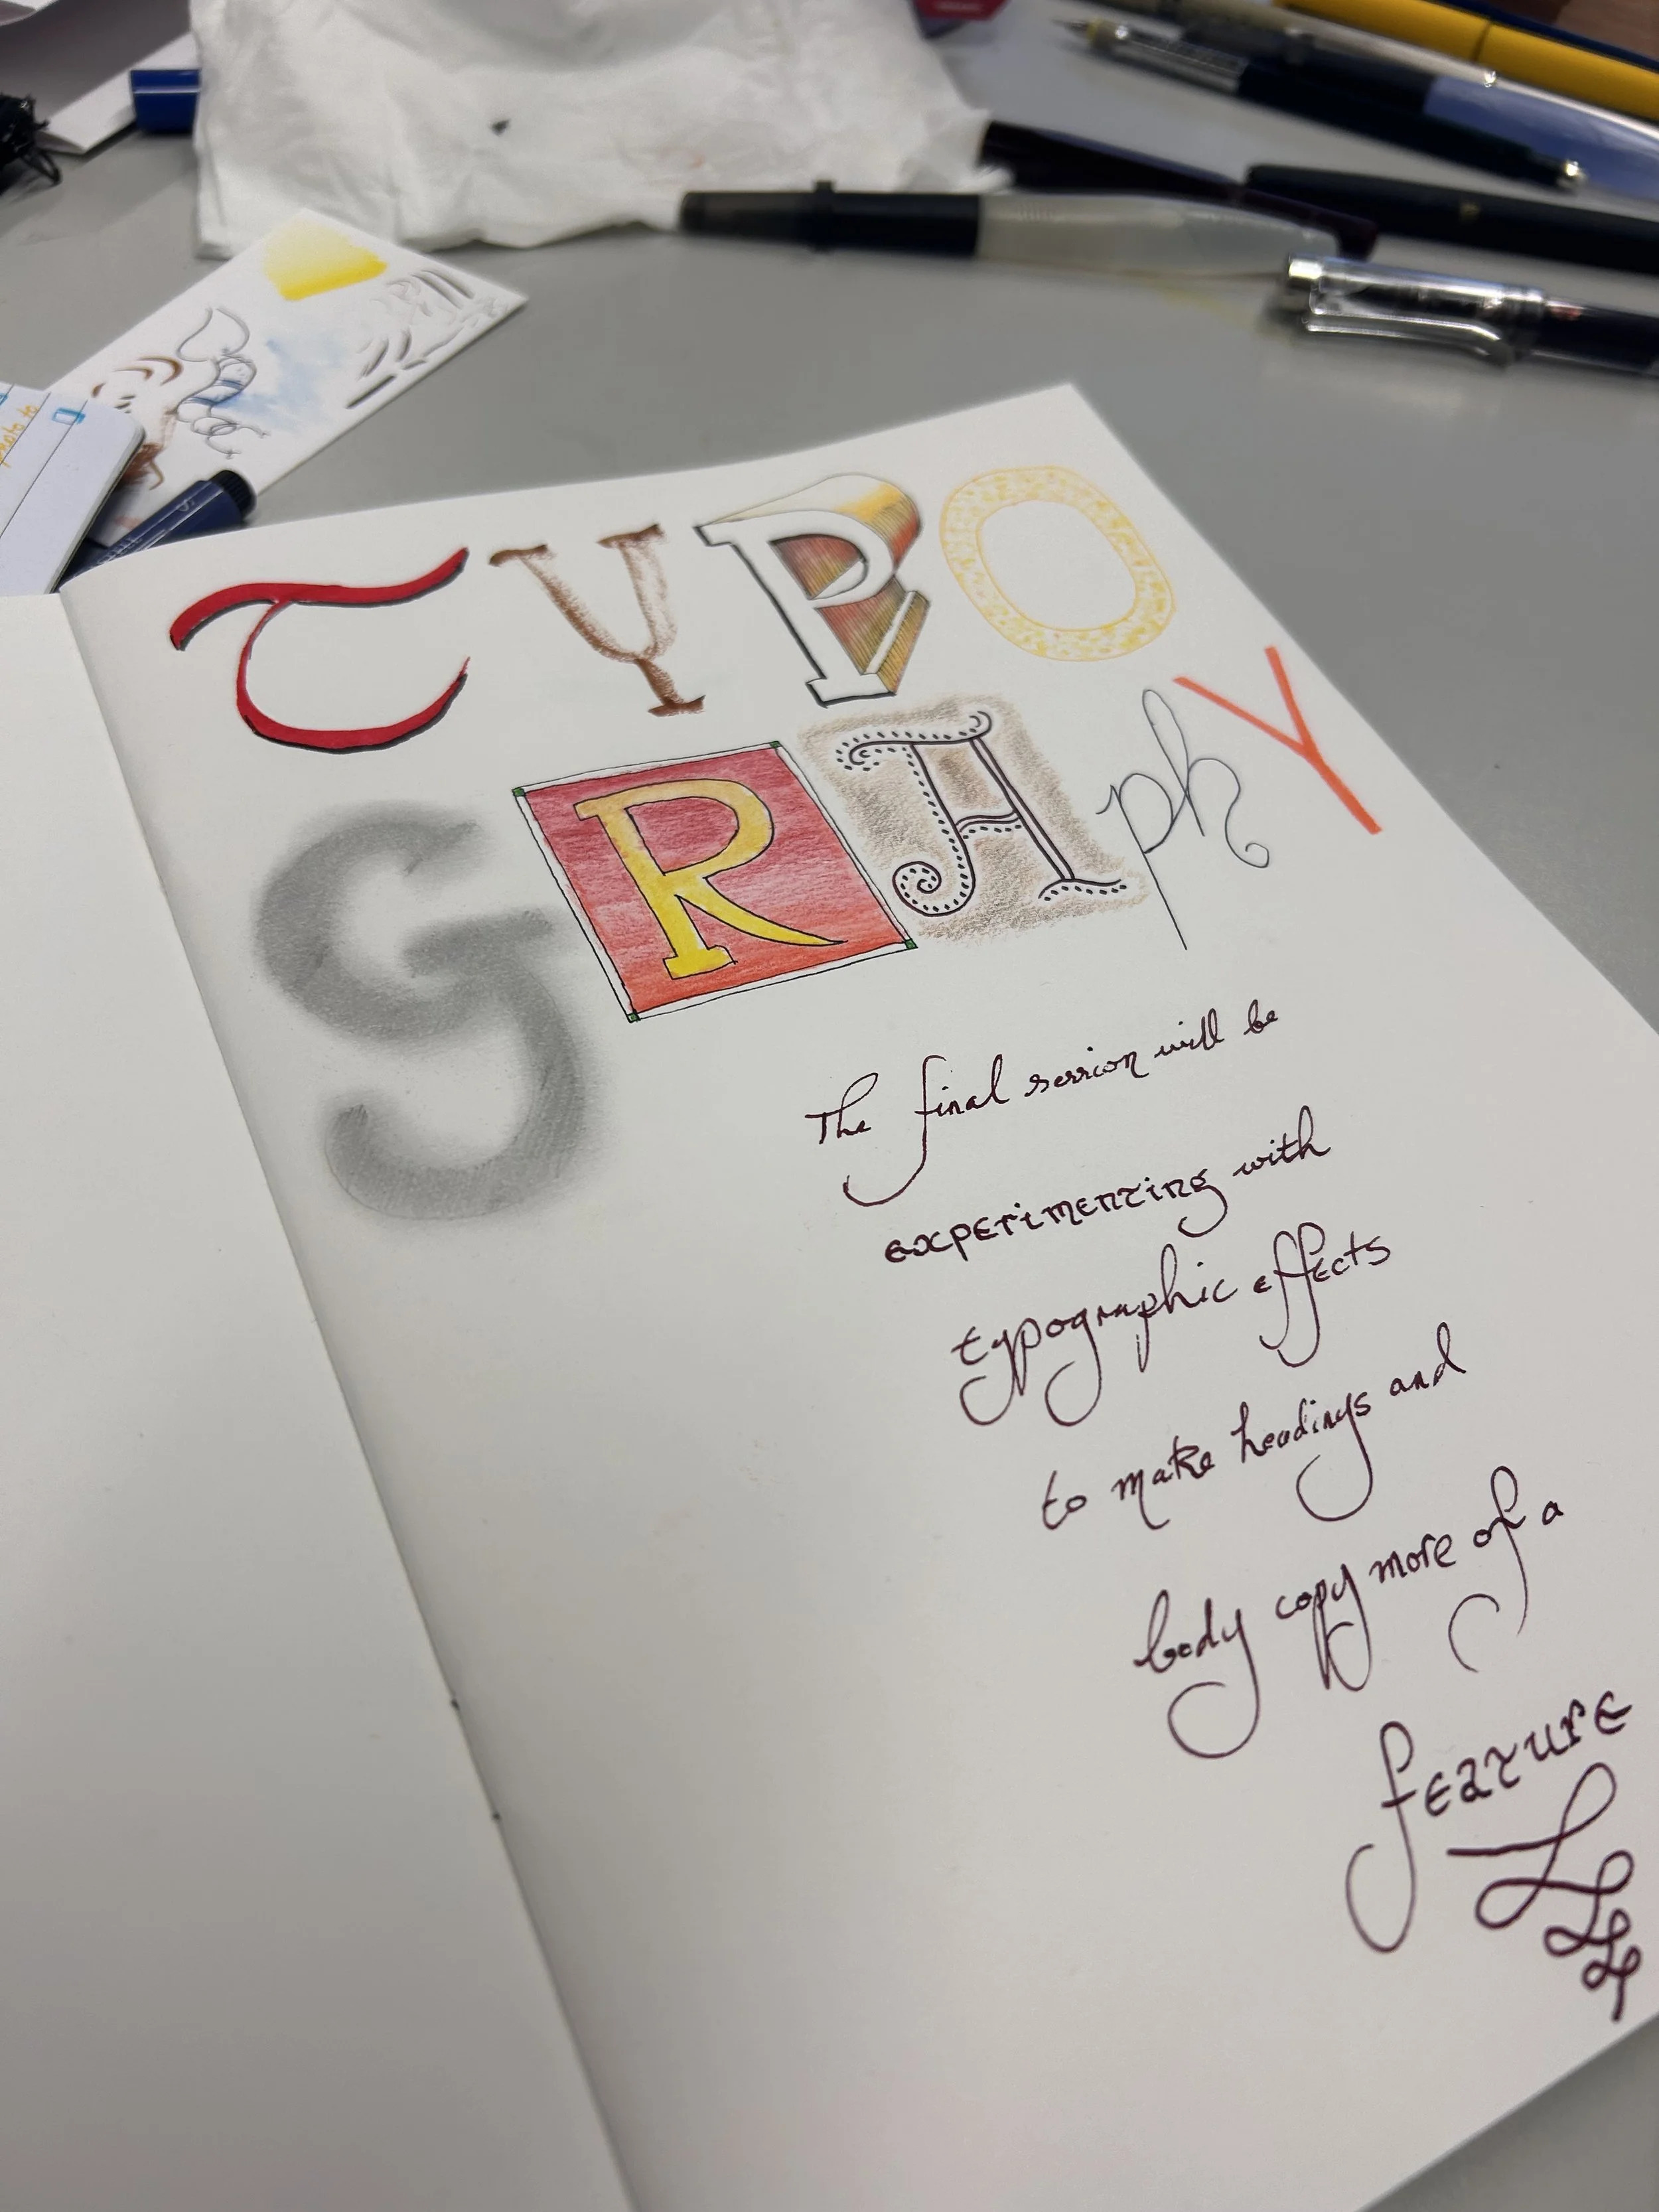 TYPO
GRAphY
The final session will be
experimenting with
typographic effects
to make headings and
body copy more of a
feature